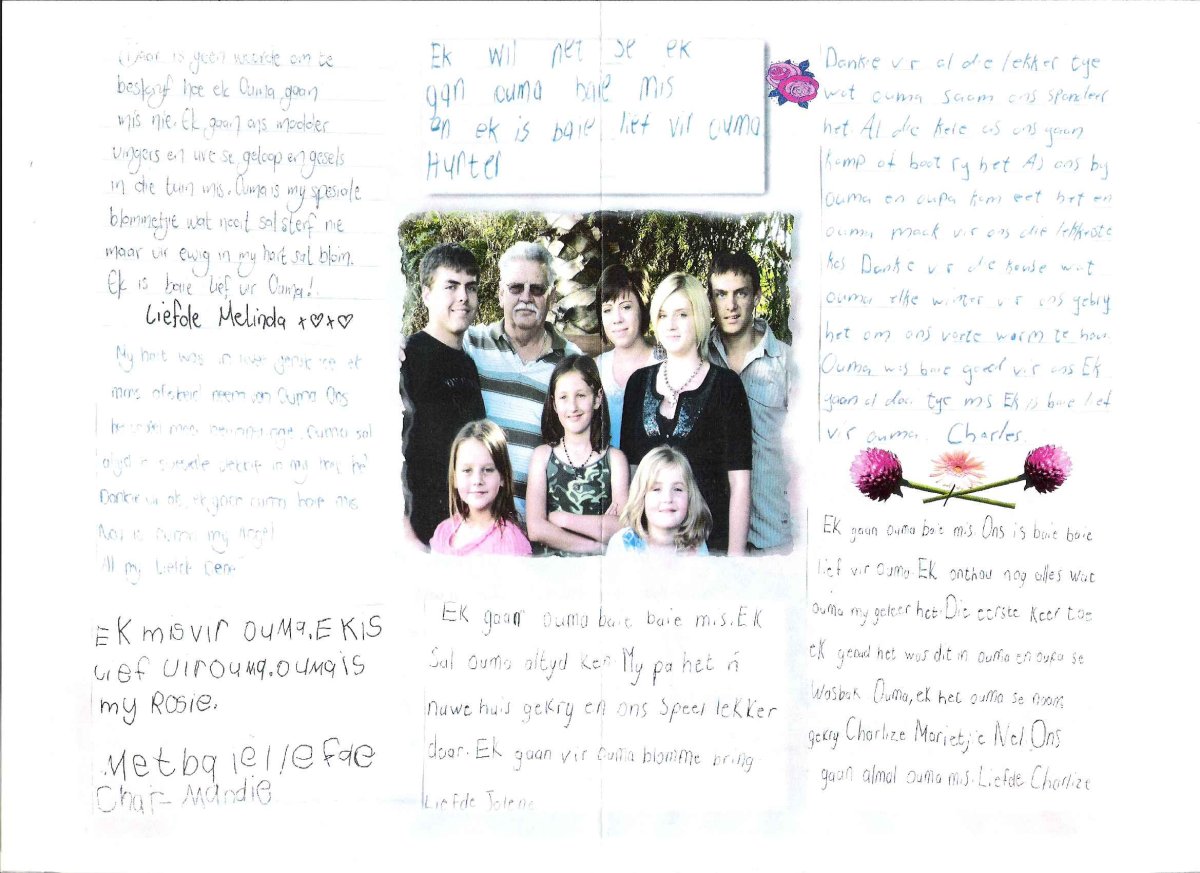 Daar is geen woorde om te
beskryf hoe ek Ouma gaan
mis nie. Ek gaan ons modder
vingers en ure se geloop en gesels
in die tuin mis. Ouma is my spesiale
blommetjie wat nooit sal sterf nie
maar vir ewig in my hart sal blom.
Ek is baie lief vir Ouma!
Liefde Melinda x♡x♡
My hart was
afskeid neem van Ouma Ons
Ouma sal
altyd 'n spesiale in my hart hê
Dankie vir ek gaan ouma baie mis
Nou is Ouma my Angel
All my Liefde
EK mis vir ouma. EK is
lief vir ouma. ouma is
my Rosie.
Met baie liefde
Char-Mandie
Ek wil net se ek
gan ouma baie mis
en ek is baie lief vir ouma
Hunter
EK gaan ouma baie baie mis. EK
Sal ouma altyd ken My pa het ń
nuwe huis gekry en ons speel lekker
daar. EK gaan vir ouma blomme bring
Liefde Jolene
Dankie vir al die lekker tye
wat ouma saam ons spandeer
het. Al die kere as ons gaan
kamp of boot ry het As ons by
ouma en oupa kom eet het en
ouma maak vir ons die lekkerste
kos Danke vir die kouse wat
ouma elke winter vir ons gekry
het om ons voete warm te hou.
Ouma was baie goed vir ons Ek
gaan al daai tye mis Ek is baie lief
vir ouma. Charles.
EK gaan ouma baie mis. Ons is baie baie
lief vir ouma. EK onthou nog alles wat
ouma my geleer het. Die eerste keer toe
ek gebad het was dit in ouma en oupa se
Wasbak Ouma, ek het ouma se naam
gekry Charlize Marietjie Nel Ons
gaan almal ouma mis. Liefde Charlize